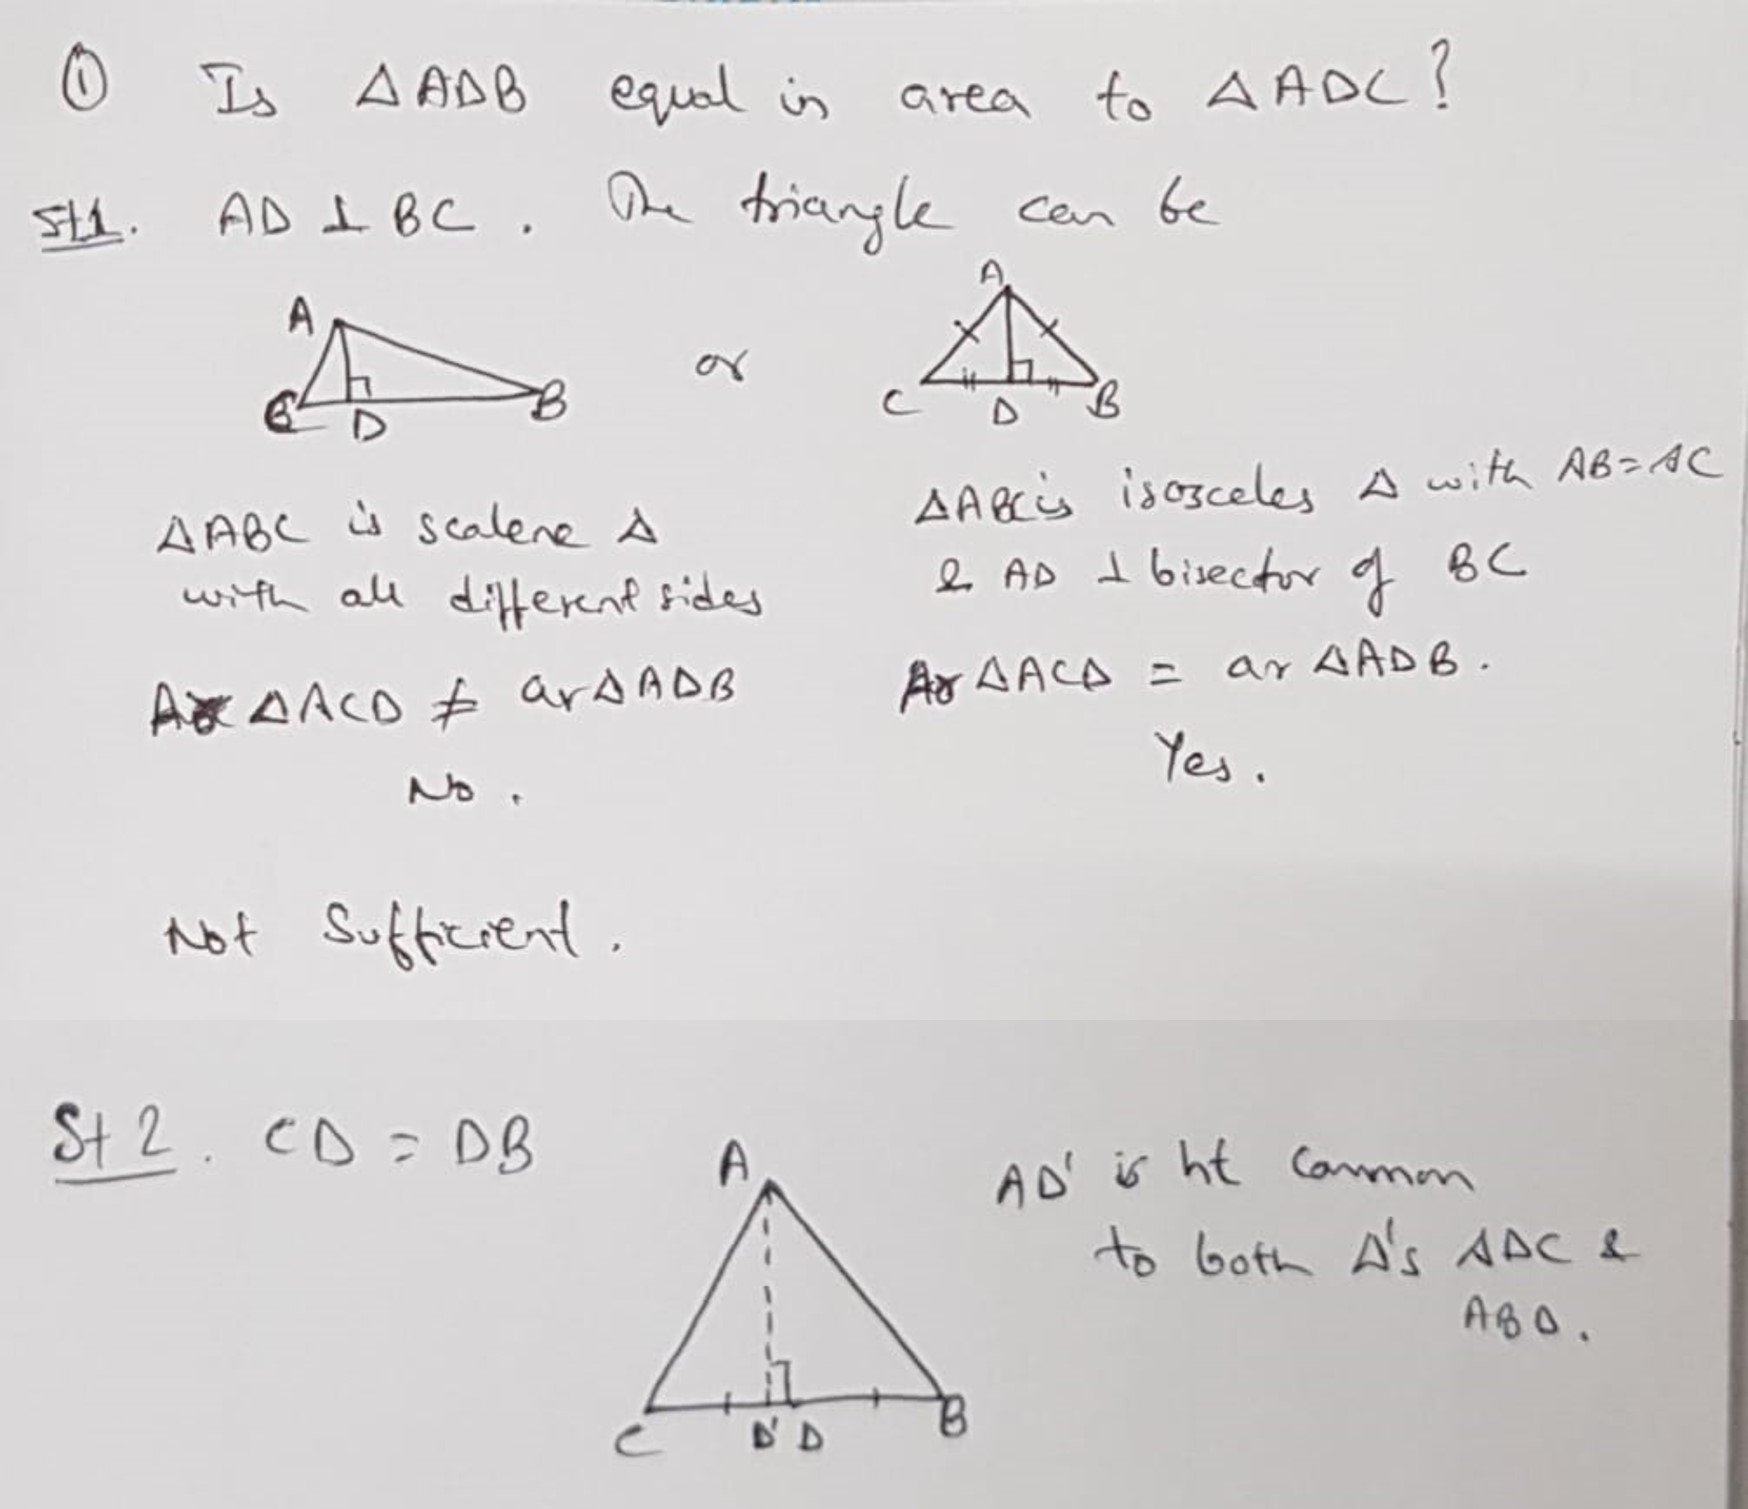 ① Is △ADB equal in area to △ADC?
St1. AD ⊥ BC. The triangle can be
A
C D B
or
A
C D B
△ABC is scalene △
with all different sides
Ar △ACD ≠ ar △ADB
No.
△ABC is isosceles △ with AB=AC
& AD ⊥ bisector of BC
Ar △ACD = ar △ADB.
Yes.
Not Sufficient.
St 2. CD = DB
A
C D' D B
AD' is ht common
to both △'s ADC &
ABD.